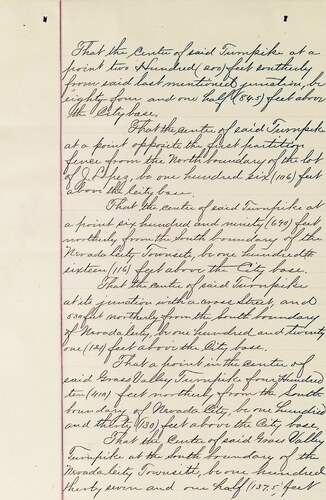 That the center of said Turnpike at a
point two Hundred (200) feet southerly
from said last mentioned junction, be
eighty four and one half (84.5) feet above
the City base.
That the center of said Turnpike
at a point opposite the first partition
fence from the North boundary of the lot
of J. be one hundred six (106) feet
above the City base.
That the center of said Turnpike at
a point six hundred and ninety (690) feet
northerly from the South boundary of the
Nevada City Townsite, be one hundred &
sixteen (116) feet above the City base.
That the center of said Turnpike
at its junction with a cross Street, and
feet northerly from the South boundary
of Nevada City, be one hundred and twenty
one (121) feet above the City base.
That a point in the center of
said Grass Valley Turnpike four Hundred
ten (410) feet northerly from the South
boundary of Nevada City, be one hundred
and thirty (130) feet above the City base,
That the Center of said Grass Valley
Turnpike at the South boundary of the
Nevada City Townsite, be one hundred
thirty seven and one half (137.5) feet